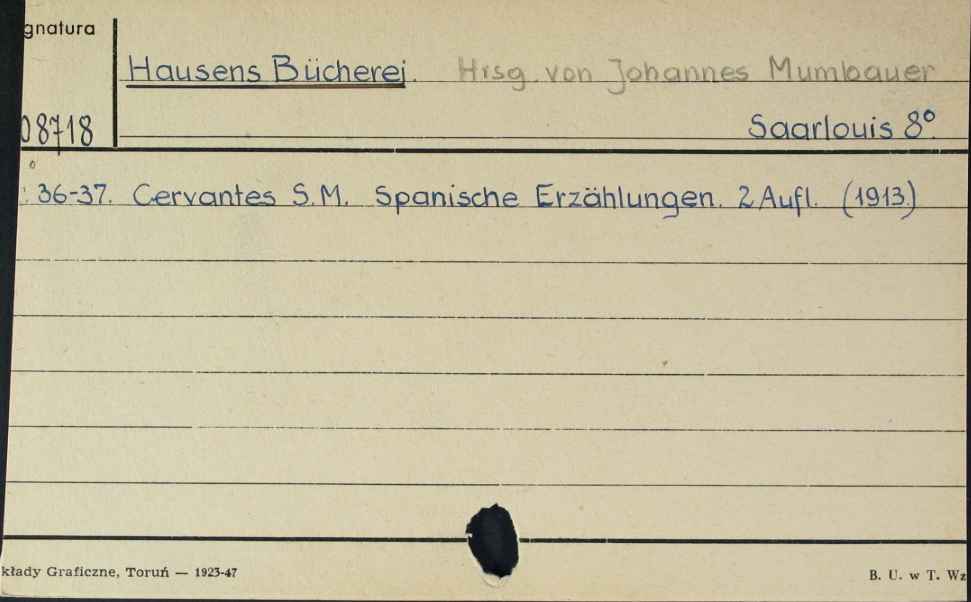 gnatura
Hausens Bücherei. Hrsg. von Johannes Mumbauer
08718
Saarlouis 8°.
36-37. Cervantes S.M. Spanische Erzählungen. 2 Aufl. (1913.)
kłady Graficzne, Toruń — 1923-47
B. U. w T. Wz